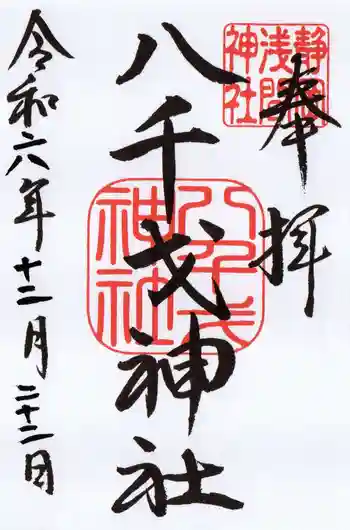 奉拝
静岡浅間神社
八千戈神社
八千戈神社
令和六年十二月二十二日